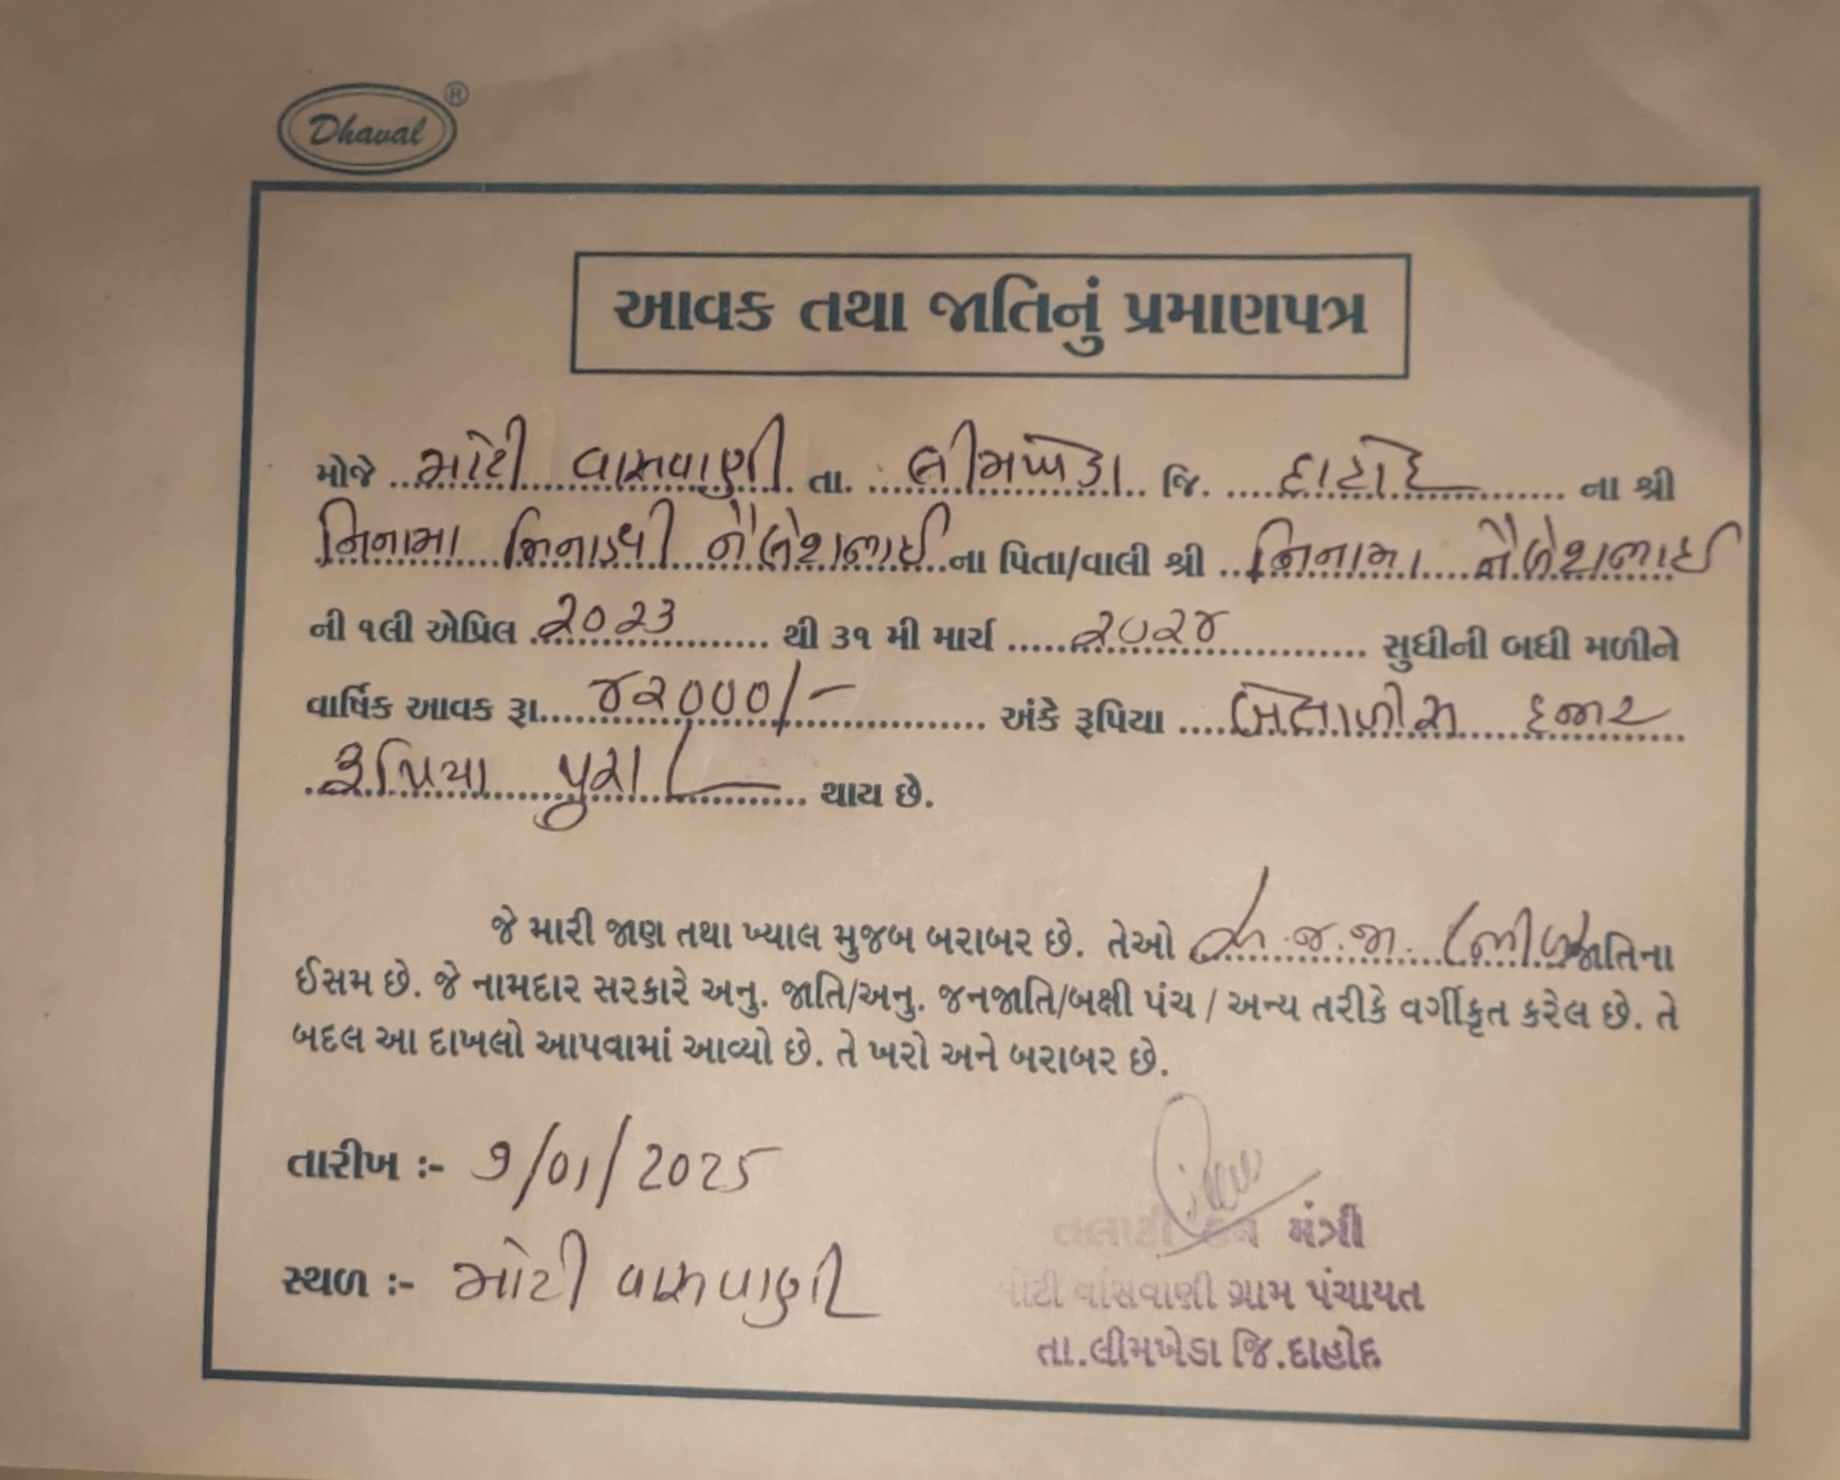 Dhaval ®
આવક તથા જાતિનું પ્રમાણપત્ર
મોજે મોટી વાસવાણી તા. લીમખેડા જિ. દાહોદ ના શ્રી
મિનામા મિનાક્ષી નૈલેશભાઈ ના પિતા/વાલી શ્રી મિનામા નૈલેશભાઈ
ની ૧લી એપ્રિલ ૨૦૨૩ થી ૩૧ મી માર્ચ ૨૦૨૪ સુધીની બધી મળીને
વાર્ષિક આવક રૂા. ૪૨૦૦૦/- અંકે રૂપિયા બેતાળીસ હજાર
રૂપિયા પુરા થાય છે.
જે મારી જાણ તથા ખ્યાલ મુજબ બરાબર છે. તેઓ અ.જ.જા. (ભીલ) જાતિના
ઈસમ છે. જે નામદાર સરકારે અનુ. જાતિ/અનુ. જનજાતિ/બક્ષી પંચ / અન્ય તરીકે વર્ગીકૃત કરેલ છે. તે
બદલ આ દાખલો આપવામાં આવ્યો છે. તે ખરો અને બરાબર છે.
તારીખ :- /01/2025
તલાટી કમ મંત્રી
સ્થળ :- મોટી વાસવાણી
મોટી વાંસવાણી ગ્રામ પંચાયત
તા.લીમખેડા જિ.દાહોદ